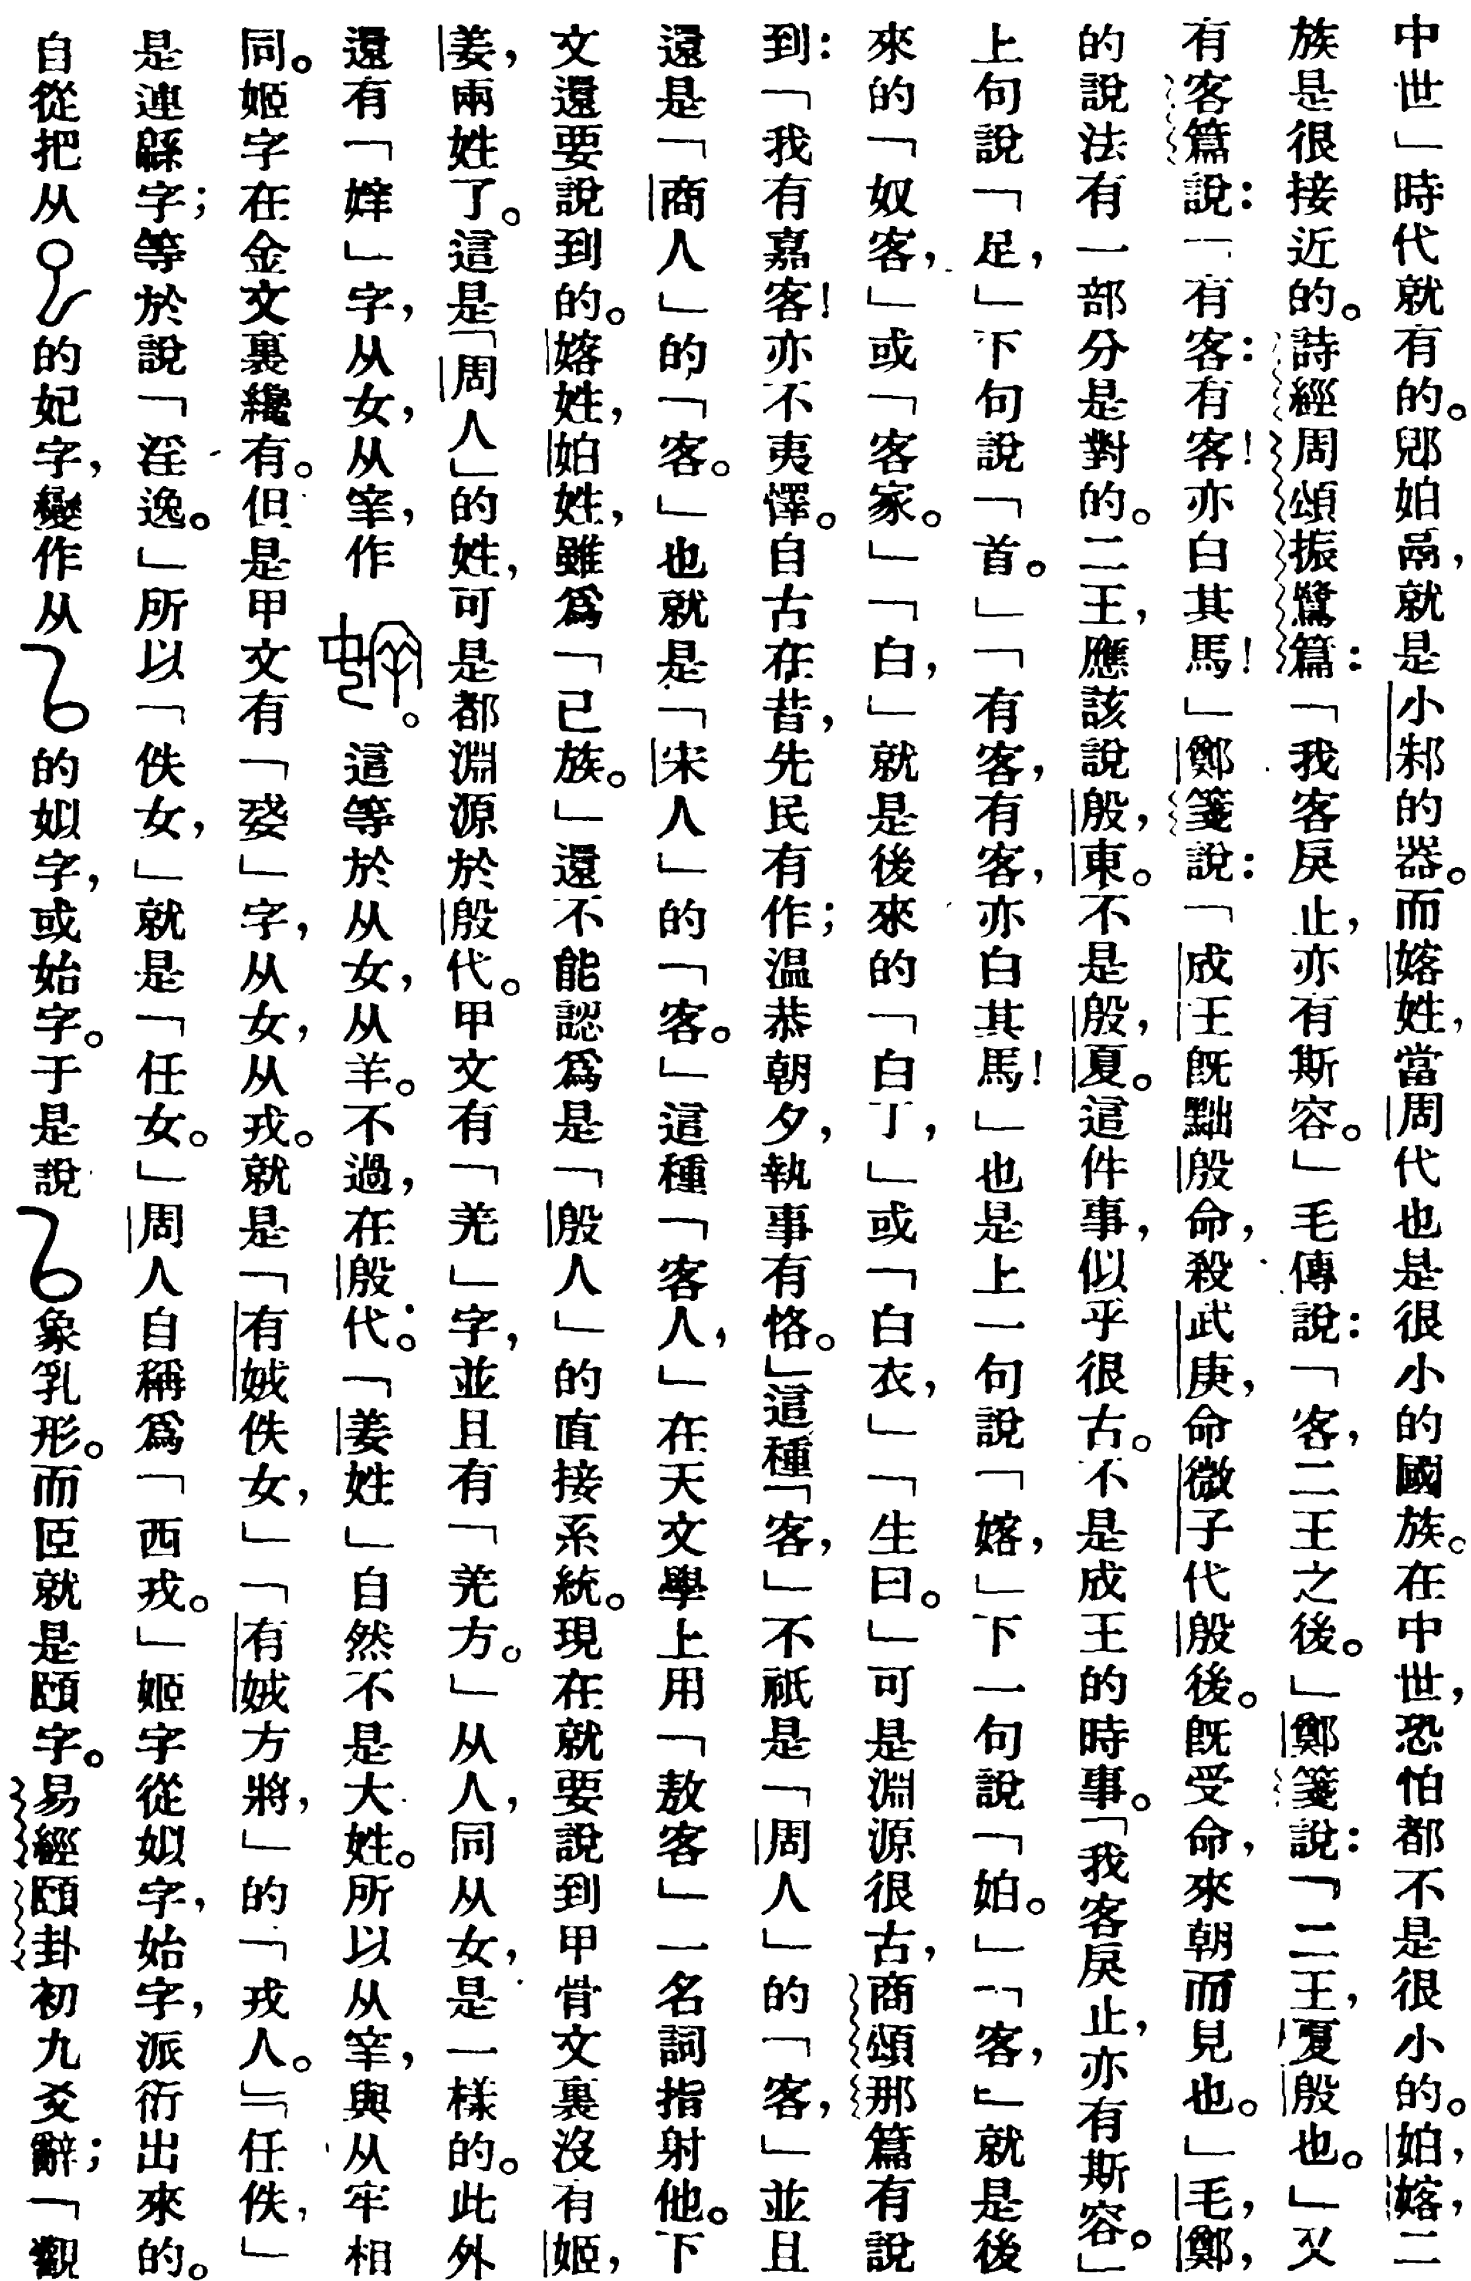 中世」時代就有的。郳始鬲,就是小邾的器。而嫆姓,當周代也是很小的國族。在中世,恐怕都不是很小的。始,嫆,二
族是很接近的。詩經周頌振鷺篇:「我客戾止,亦有斯容。」毛傳說:「客,二王之後。」鄭箋說:「二王,夏殷也。」又
有客篇說:「有客:有客!亦白其馬!」鄭箋說:「成王旣黜殷命,殺武庚,命微子代殷後。旣受命,來朝而見也。」毛,鄭,
的說法有一部分是對的。二王,應該說殷,東。不是殷,夏。這件事,似乎很古。不是成王的時事。「我客戾止,亦有斯容。」
上句說「足,」下句說「首。」「有客,有客,亦白其馬!」也是上一句說「嫆,」下一句說「始。」「客,」就是後
來的「奴客,」或「客家。」「白,」就是後來的「白丁,」或「白衣,」「生曰。」可是淵源很古,商頌那篇有說
到:「我有嘉客!亦不夷懌。自古在昔,先民有作;温恭朝夕,執事有恪。」這種「客,」不祇是「周人」的「客,」並且
還是「商人」的「客。」也就是「宋人」的「客。」這種「客人,」在天文學上用「敖客」一名詞指射他。下
文還要說到的。嫆姓,始姓,雖爲「已族。」還不能認爲是「殷人」的直接系統。現在就要說到甲骨文裏沒有姬,
姜,兩姓了。這是「周人」的姓,可是都淵源於殷代。甲文有「羌」字,並且有「羌方。」从人,同从女,是一樣的。此外
還有「㛙」字,从女,从宰,作。這等於从女,从羊。不過,在殷代。「姜姓」自然不是大姓。所以从宰,與从牢相
同。姬字在金文裏纔有。但是甲文有「㜪」字,从女,从戎。就是「有娀佚女,」「有娀方將,」的「戎人。」「任佚,」
是連緜字;等於說「淫逸。」所以「佚女,」就是「任女。」周人自稱爲「西戎。」姬字從姒字,始字,派衍出來的。
自從把从的妃字,變作从的姒字,或始字。于是說象乳形。而𦣞就是頤字。易經頤卦初九爻辭;「觀